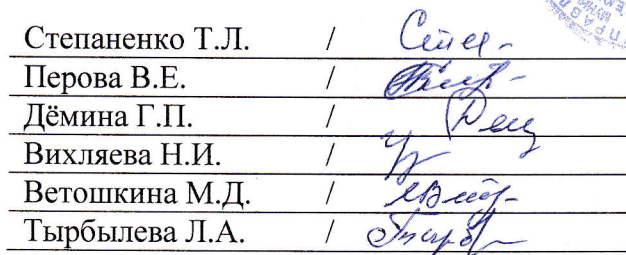 Степаненко Т.Л. /
Перова В.Е. /
Дёмина Г.П. /
Вихляева Н.И. /
Ветошкина М.Д. /
Тырбылева Л.А. /